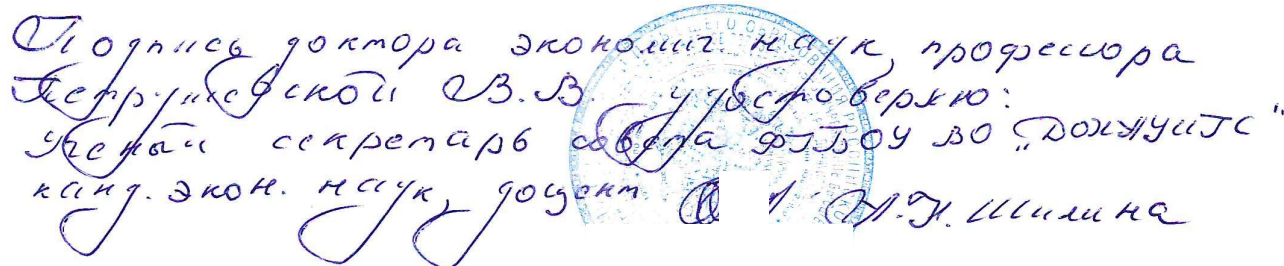 Подпись доктора экономич. наук, профессора
В.В. удостоверяю:
Ученый секретарь совета ФГБОУ ВО „ДОНАУИГС"
канд. экон. наук, доцент Шилина